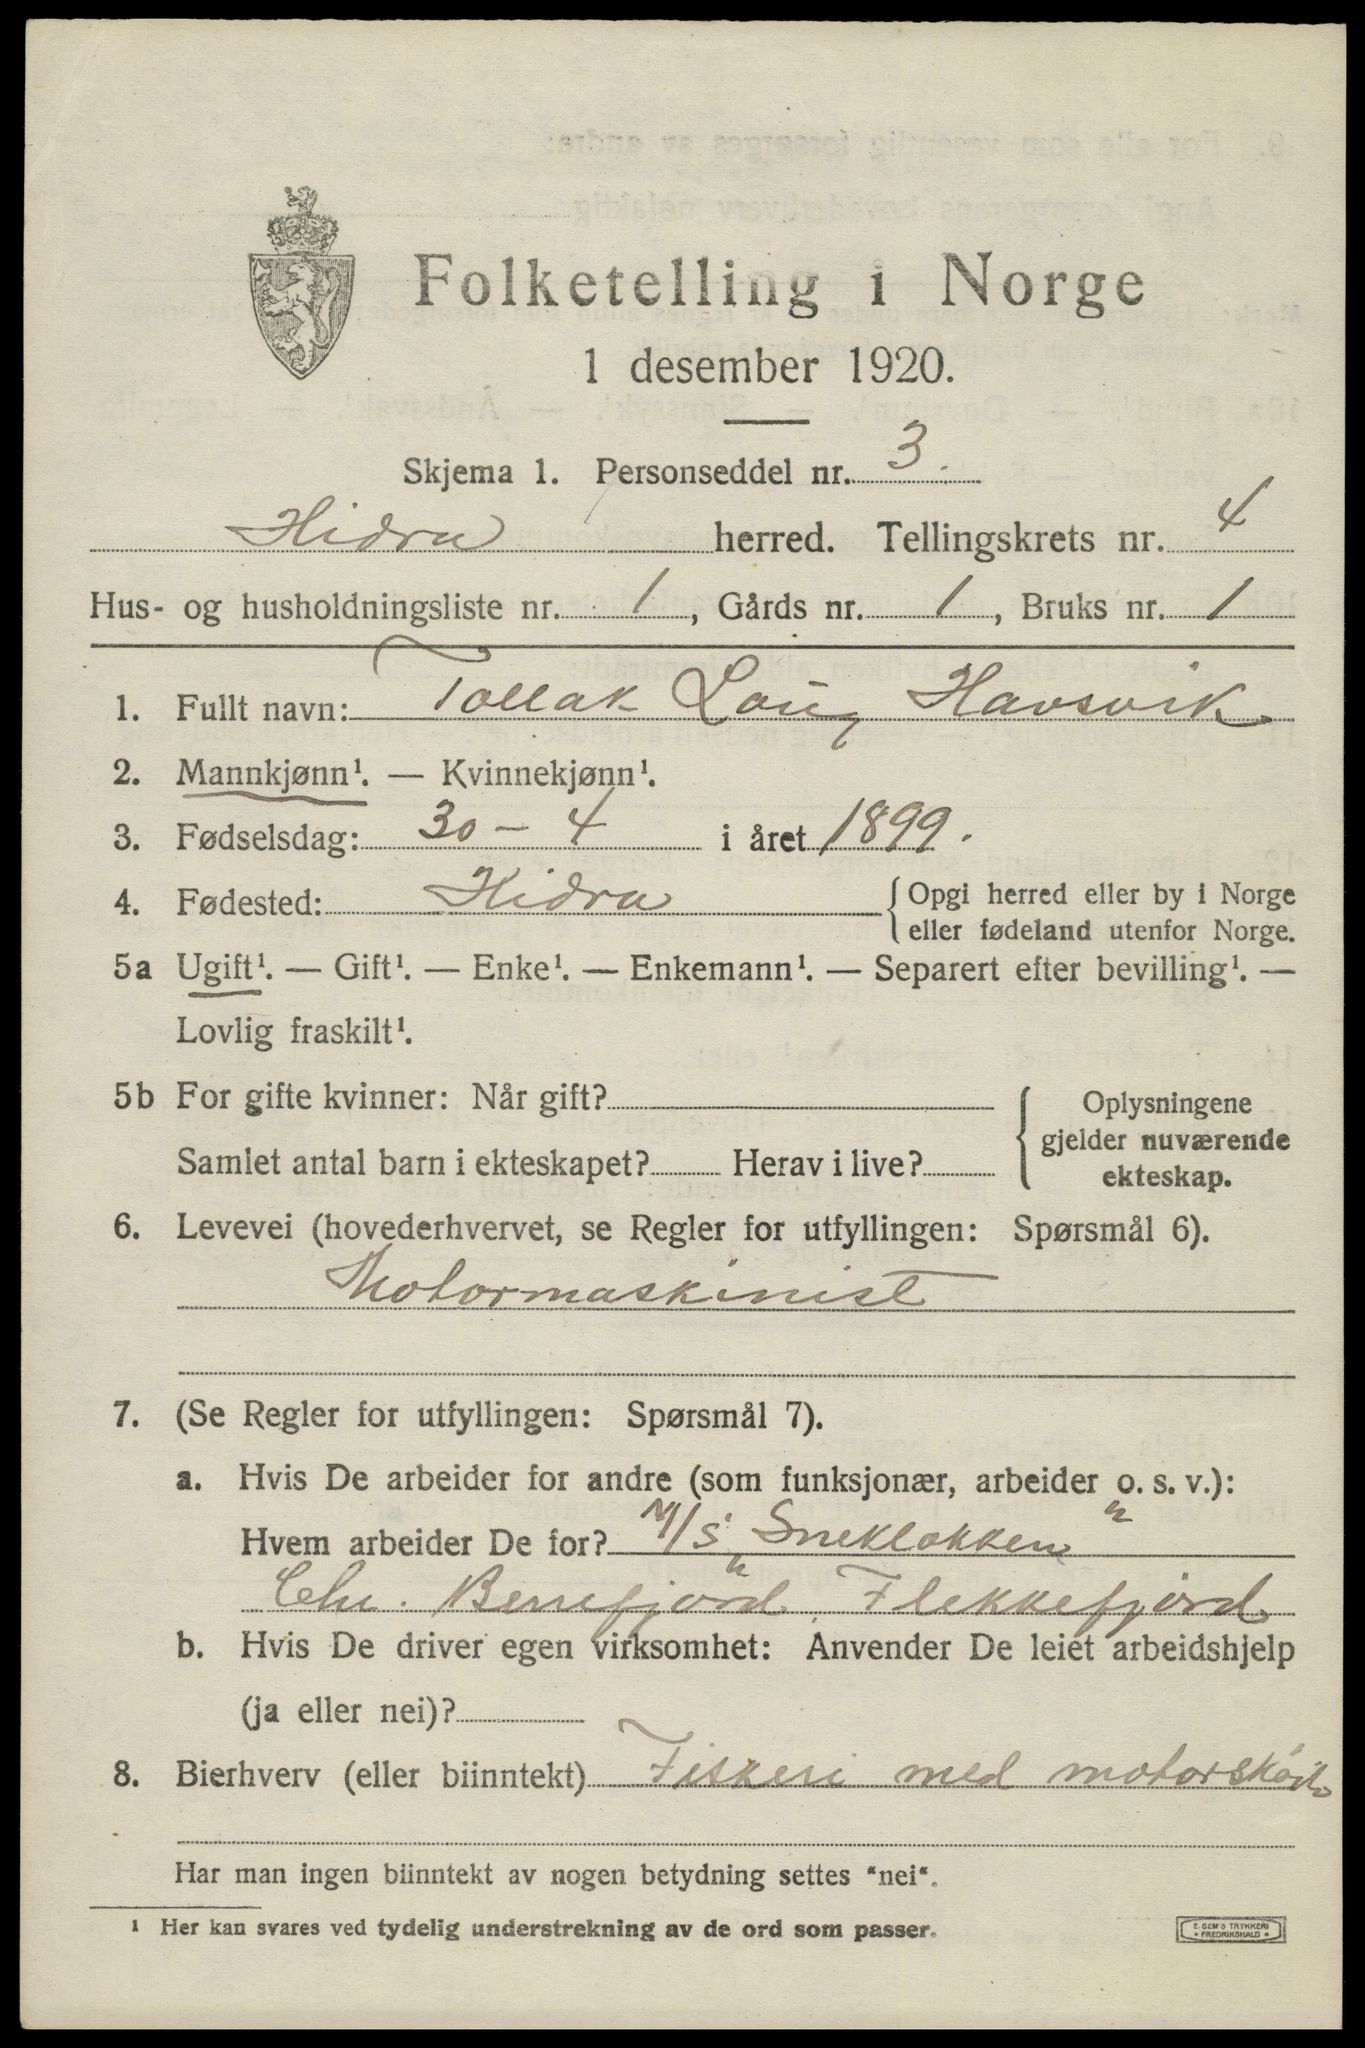 Folketelling i Norge
1 desember 1920.
Skjema 1. Personseddel nr. 3.
Hidra herred. Tellingskrets nr. 4
Hus- og husholdningsliste nr. 1, Gårds nr. 1, Bruks nr. 1
1. Fullt navn: Tollak Havsvik
2. Mannkjønn¹. — Kvinnekjønn¹.
3. Fødselsdag: 30 – 4 i året 1899.
4. Fødested: Hidra { Opgi herred eller by i Norge
eller fødeland utenfor Norge.
5a Ugift¹. — Gift¹. — Enke¹. — Enkemann¹. — Separert efter bevilling¹. —
Lovlig fraskilt¹.
5b For gifte kvinner: Når gift?
Samlet antal barn i ekteskapet? Herav i live?
{ Oplysningene
gjelder nuværende
ekteskap.
6. Levevei (hovederhvervet, se Regler for utfyllingen: Spørsmål 6).
Motormaskinist
7. (Se Regler for utfyllingen: Spørsmål 7).
a. Hvis De arbeider for andre (som funksjonær, arbeider o. s. v.):
Hvem arbeider De for? M/S „Sneklokken"
Chr. Berrefjord Flekkefjord
b. Hvis De driver egen virksomhet: Anvender De leiet arbeidshjelp
(ja eller nei)?
8. Bierhverv (eller biinntekt) Fiskeri med
Har man ingen biinntekt av nogen betydning settes "nei".
¹ Her kan svares ved tydelig understrekning av de ord som passer.
E. SEM'S TRYKKERI
* FREDRIKSHALD *